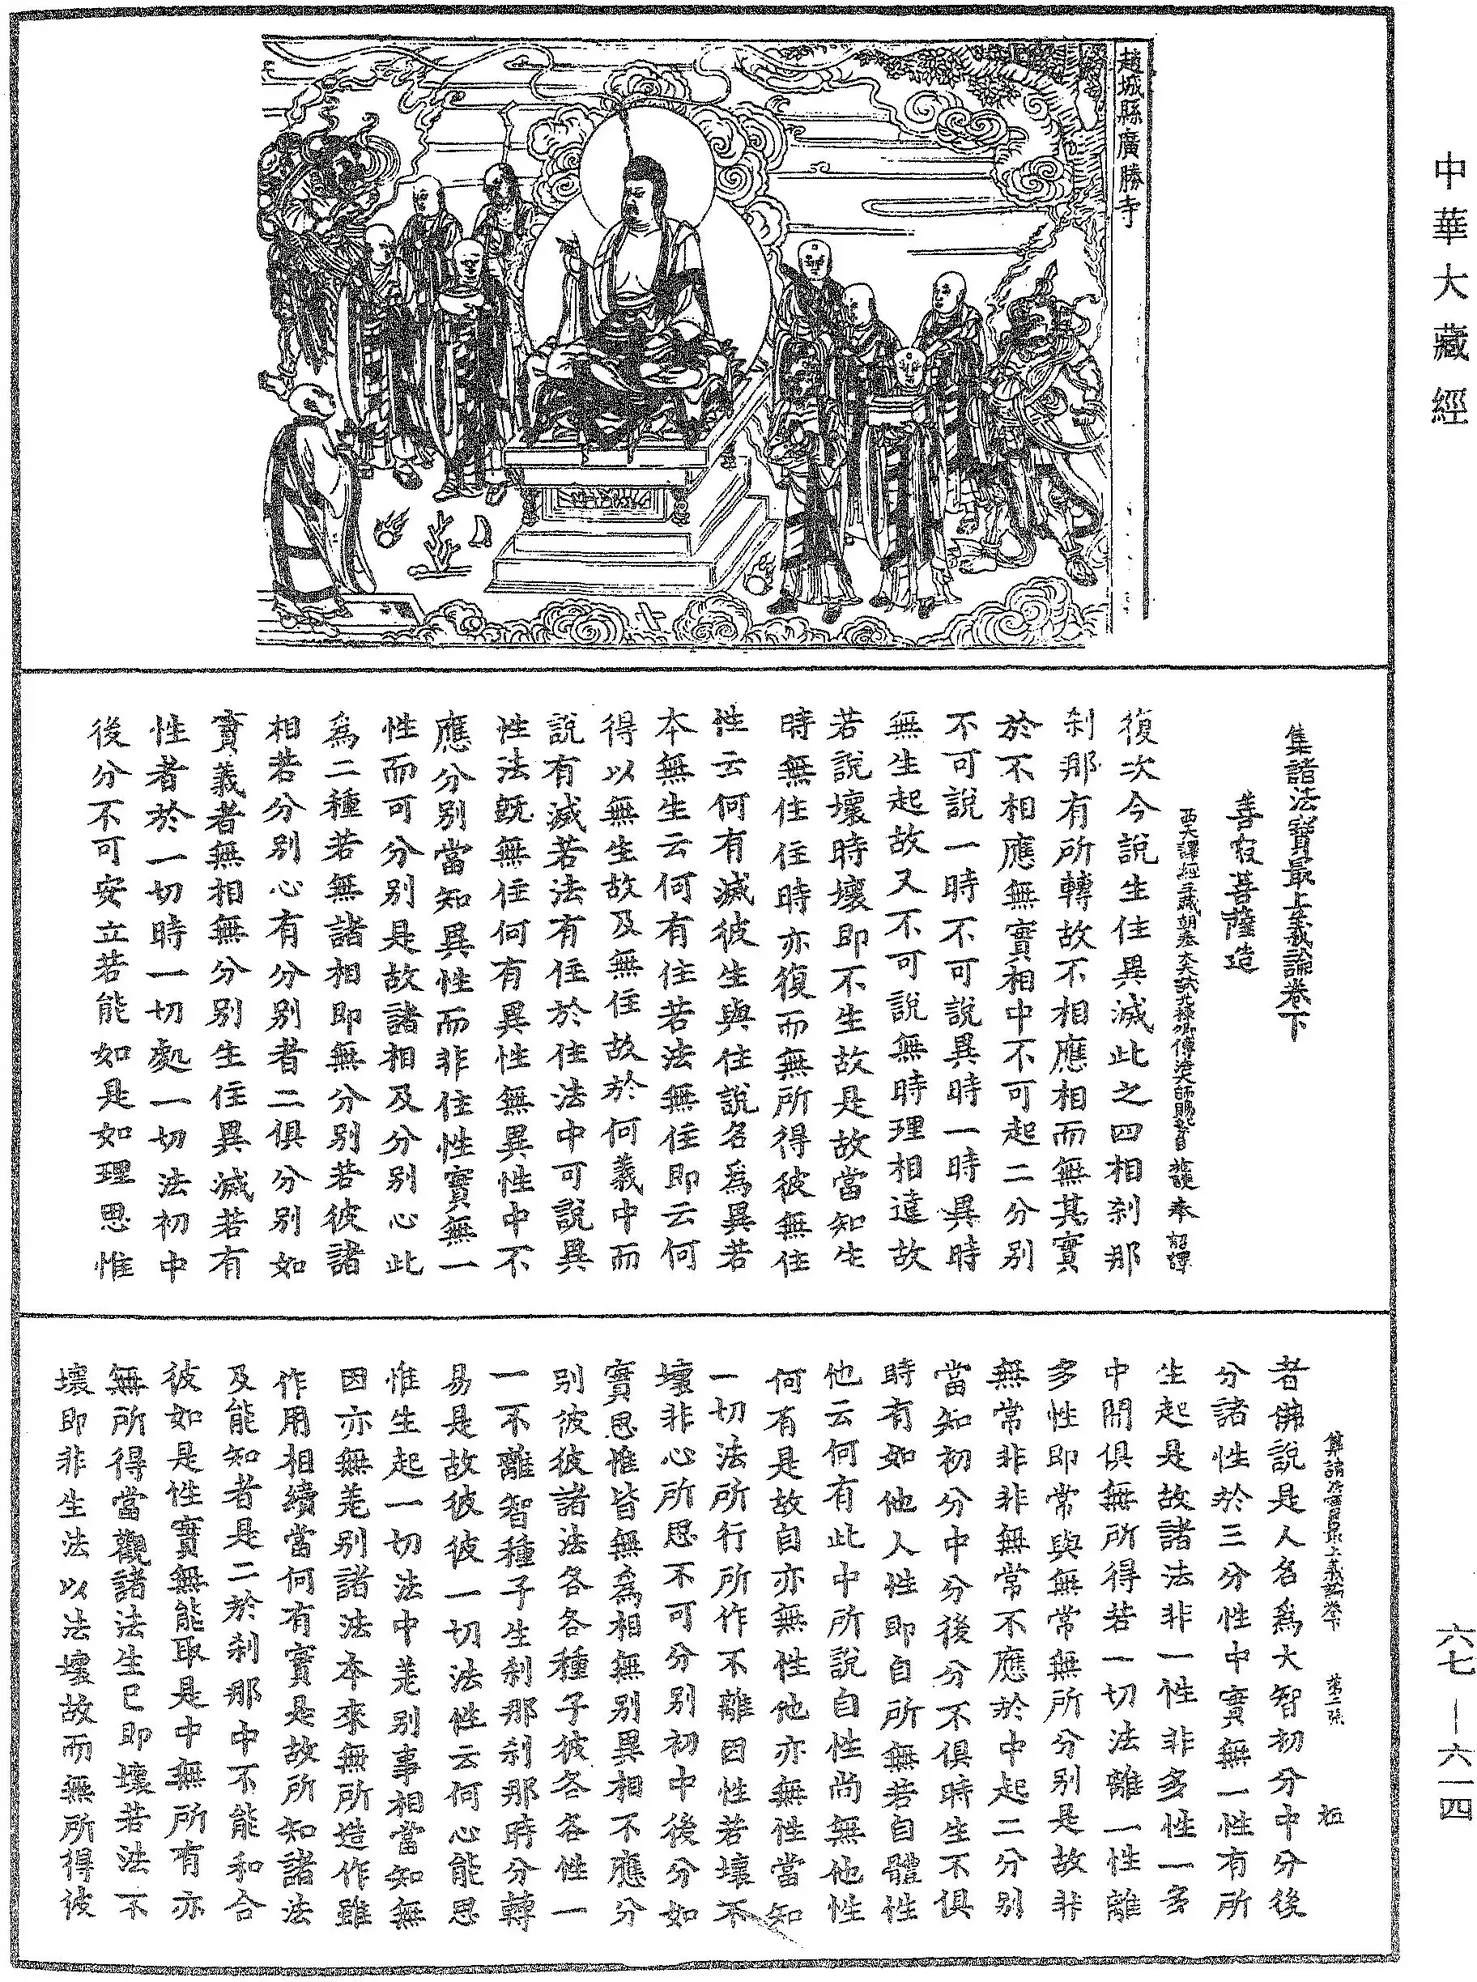 中華大藏經
趙城縣廣勝寺
集諸法寶最上義論卷下
善寂菩薩造
西天譯經三藏朝奉大夫試光祿卿傳法大師賜紫臣施護奉　詔譯
復次今說生住異滅此之四相刹那
刹那有所轉故不相應相而無其實
於不相應無實相中不可起二分別
不可說一時不可說異時一時異時
無生起故又不可說無時理相違故
若說壞時壞即不生故是故當知生
時無住住時亦復而無所得彼無住
性云何有滅彼生與住說名為異若
本無生云何有住若法無住即云何
得以無生故及無住故於何義中而
說有滅若法有住於住法中可說異
性法既無住何有異性無異性中不
應分別當知異性而非住性實無一
性而可分別是故諸相及分別心此
為二種若無諸相即無分別若彼諸
相若分別心有分別者二俱分別如
實義者無相無分別生住異滅若有
性者於一切時一切處一切法初中
後分不可安立若能如是如理思惟
集諸法寶最上義論卷下　第二張
者佛說是人名為大智初分中分後
分諸性於三分性中實無一性有所
生起是故諸法非一性非多性一多
中間俱無所得若一切法離一性離
多性即常與無常無所分別是故非
無常非非無常不應於中起二分別
當知初分中分後分不俱時生不俱
時有如他人性即自所無若自體性
他云何有此中所說自性尚無他性
何有是故自亦無性他亦無性當知
一切法所行所作不離因性若壞不
壞非心所思不可分別初中後分如
實思惟皆無為相無別異相不應分
別彼彼諸法各各種子彼各各性一
一不離智種子生刹那刹那時分轉
易是故彼彼一切法性云何心能思
惟生起一切法中差別事相當知無
因亦無差別諸法本來無所造作雖
作用相續當何有實是故所知諸法
及能知者是二於刹那中不能和合
彼如是性實無能取是中無所有亦
無所得當觀諸法生已即壞若法不
壞即非生法以法壞故而無所得彼
六七—六一四